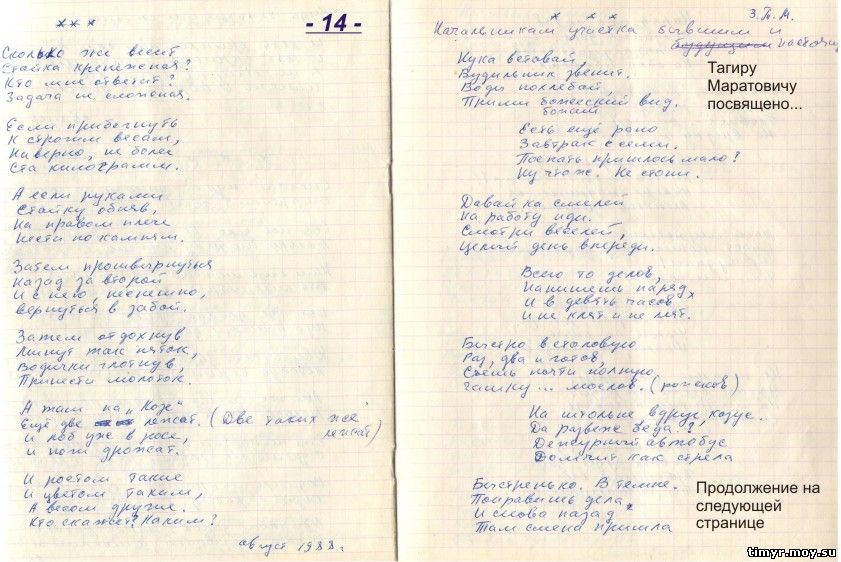 - 14 -
* * *
Сколько же весит
Стойка крепёжная?
Кто мне ответит?
Задача не сложная.
Если прибегнуть
К строгим весам,
Наверно, не более
Ста килограмм.
А если руками
Стойку обняв,
На правом плече
Нести по камням.
Затем прошвырнуться
Назад за второй
И с нею, неспешно,
вернуться в забой.
Затем отдохнув
Минут так пяток,
Водички глотнув,
Принести молоток.
А там на "Козе"
Ещё две лежат. (Две таких же лежат)
И лоб уже в росе,
И ноги дрожат.
И ростом такие
И цветом таким,
А весом другие.
Кто скажет? Каким?
август 1988 г
З.П.М.
* * *
Начальникам участка бывшим и
будущим настоящ
Тагиру
Маратовичу
посвящено...
Ну-ка вставай,
Будильник звенит.
Воды похлебай,
Прими божеский вид.
Есть ещё рано
Завтрак с семи.
Поспать пришлось мало?
Ну что ж. Не стони.
Давай-ка смелей
На работу иди.
Смотри веселей,
Целый день впереди.
Всего то делов,
Напишешь наряд,
И в девять часов
И не клят и не мят.
Быстро в столовую
Раз, два и готов,
Съешь почти полную
чашку... мослов. (рожков)
На штольне вдруг казус.
Да разве беда?
Дежурный автобус
Домчит как стрела
Быстренько. В темпе.
Поправишь дела
И снова назад
Там смена пришла
Продолжение на
следующей
странице
timyr.moy.su